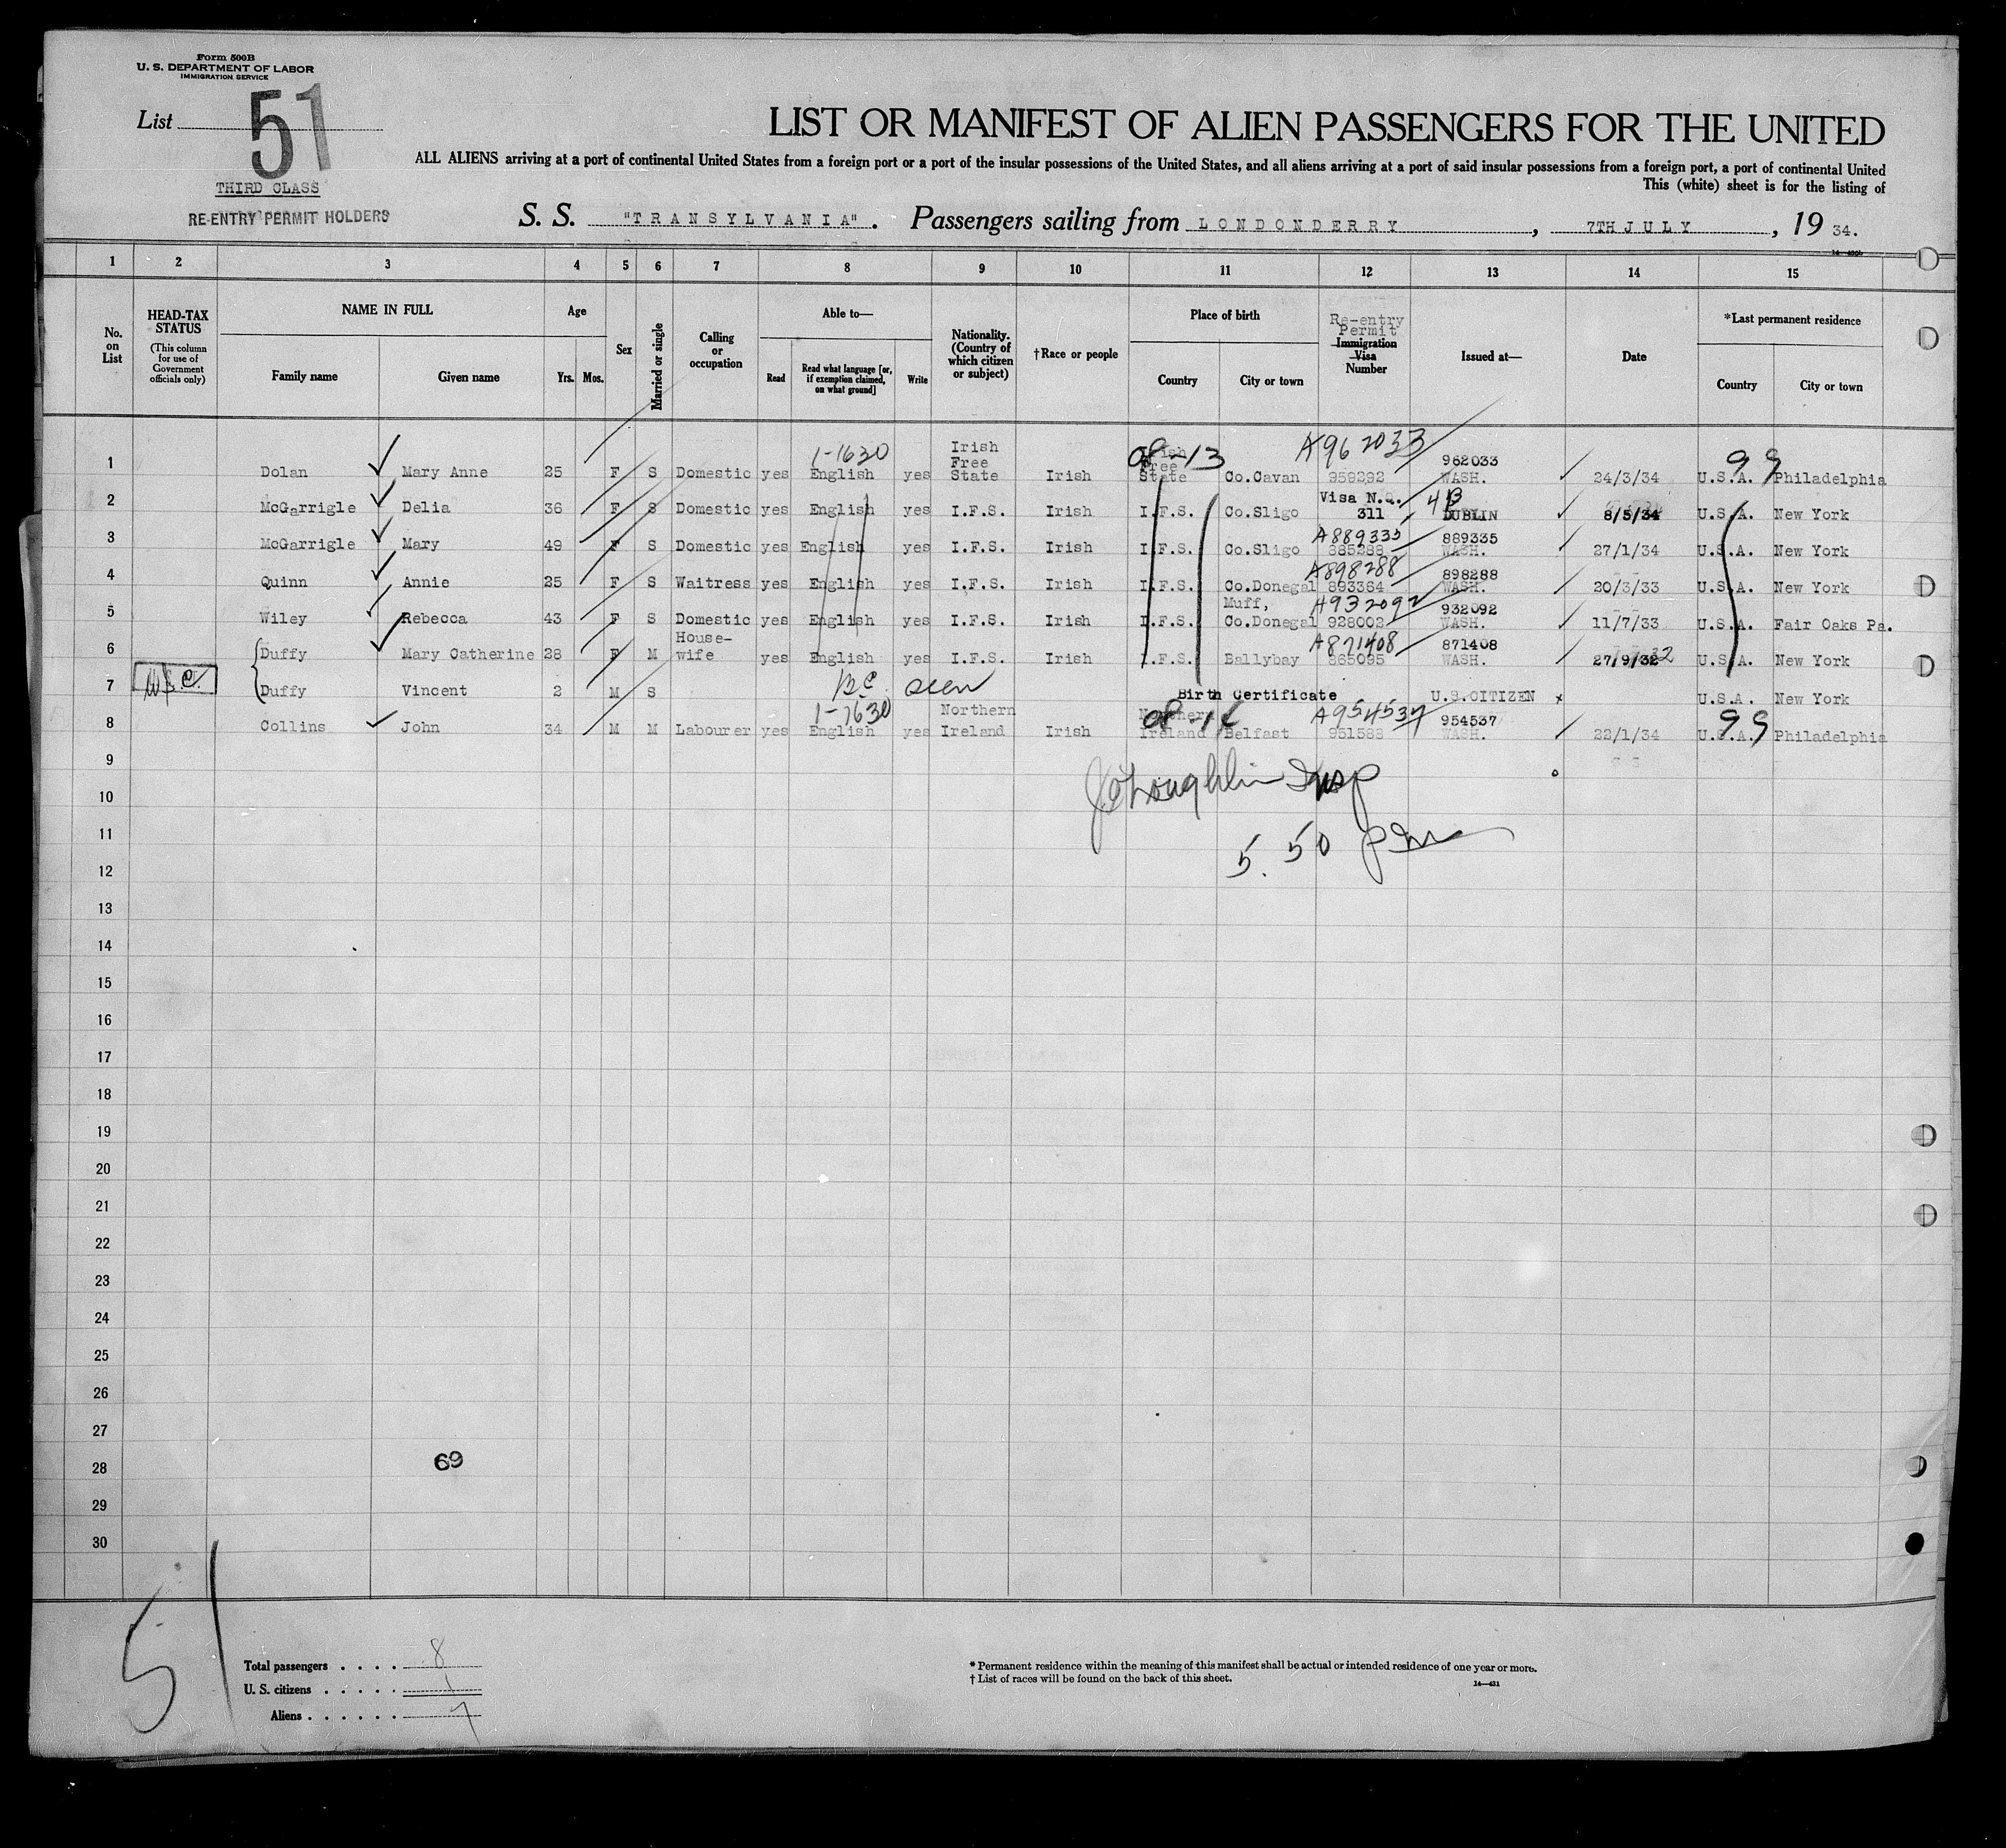 Form 500B
U. S. DEPARTMENT OF LABOR
IMMIGRATION SERVICE
List 51
THIRD CLASS
RE-ENTRY PERMIT HOLDERS
LIST OR MANIFEST OF ALIEN PASSENGERS FOR THE UNITED
ALL ALIENS arriving at a port of continental United States from a foreign port or a port of the insular possessions of the United States, and all aliens arriving at a port of said insular possessions from a foreign port, a port of continental United
This (white) sheet is for the listing of
S. S. "TRANSYLVANIA". Passengers sailing from LONDONDERRY, 7TH JULY, 19 34.
1 2 3 4 5 6 7 8 9 10 11 12 13 14 15
No. on List
HEAD-TAX STATUS (This column for use of Government officials only)
NAME IN FULL Family name Given name
Age Yrs. Mos.
Sex
Married or single
Calling or occupation
Able to— Read Read what language [or, if exemption claimed, on what ground] Write
Nationality. (Country of which citizen or subject)
†Race or people
Place of birth Country City or town
Re-entry Permit Immigration Visa Number
Issued at—
Date
*Last permanent residence Country City or town
1 Dolan Mary Anne 25 F S Domestic yes 1-1630 English yes Irish Free State Irish Irish Free State 08-13 Co.Cavan A962033 959292 962033 WASH. 24/3/34 U.S.A. 99 Philadelphia
2 McGarrigle Delia 36 F S Domestic yes English yes I.F.S. Irish I.F.S. Co.Sligo Visa N.Q. 311 4B DUBLIN 8/5/34 U.S.A. New York
3 McGarrigle Mary 49 F S Domestic yes English yes I.F.S. Irish I.F.S. Co.Sligo A889335 885288 889335 WASH. 27/1/34 U.S.A. New York
4 Quinn Annie 25 F S Waitress yes English yes I.F.S. Irish I.F.S. Co.Donegal A898288 893364 898288 WASH. 20/3/33 U.S.A. New York
5 Wiley Rebecca 43 F S Domestic yes English yes I.F.S. Irish I.F.S. Muff, Co.Donegal A932092 928002 932092 WASH. 11/7/33 U.S.A. Fair Oaks Pa.
6 Duffy Mary Catherine 28 F M House-wife yes English yes I.F.S. Irish I.F.S. Ballybay A871408 865095 871408 WASH. 27/9/32 U.S.A. New York
7 Duffy Vincent 2 M S BC seen Birth Certificate U.S.CITIZEN x U.S.A. New York
8 Collins John 34 M M Labourer yes 1-1630 English yes Northern Ireland Irish Northern Ireland Belfast A954537 951588 954537 WASH. 22/1/34 U.S.A. 99 Philadelphia
9
10
11
J O'Loughlin Insp
5.50 pm
12
13
14
15
16
17
18
19
20
21
22
23
24
25
26
27
28 69
29
30
51
Total passengers . . . . 8
U. S. citizens . . . . . 1
Aliens . . . . . . 7
* Permanent residence within the meaning of this manifest shall be actual or intended residence of one year or more.
† List of races will be found on the back of this sheet.
14—431